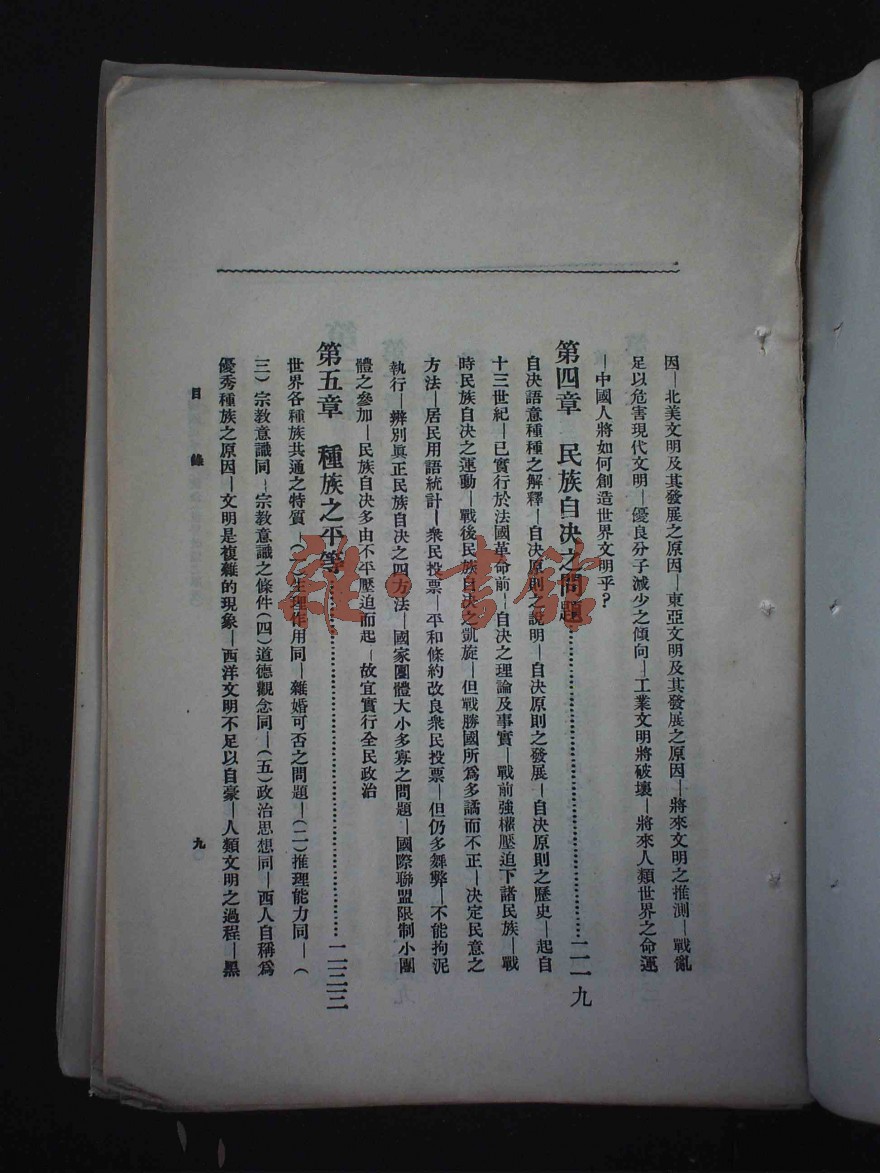 因—北美文明及其發展之原因—東亞文明及其發展之原因—將來文明之推測—戰亂
足以危害現代文明—優良分子減少之傾向—工業文明將破壞—將來人類世界之命運
—中國人將如何創造世界文明乎?
第四章 民族自決之問題……二一一九
自決語意種種之解釋—自決原則之說明—自決原則之發展—自決原則之歷史—起自
十三世紀—已實行於法國革命前—自決之理論及事實—戰前強權壓迫下諸民族—戰
時民族自決之運動—戰後民族自決之凱旋—但戰勝國所爲多譎而不正—決定民意之
方法—居民用語統計—衆民投票—平和條約改良衆民投票—但仍多舞弊—不能拘泥
執行—辨別眞正民族自決之四方法—國家團體大小多寡之問題—國際聯盟限制小團
體之參加—民族自決多由不平壓迫而起—故宜實行全民政治
第五章 種族之平等……一二三三
世界各種族共通之特質—(一)生理作用同—雜婚可否之問題—(二)推理能力同—(
三)宗教意識同—宗教意識之條件(四)道德觀念同—(五)政治思想同—西人自稱爲
優秀種族之原因—文明是複雜的現象—西洋文明不足以自豪—人類文明之過程—黑
目錄 九
雜·書館